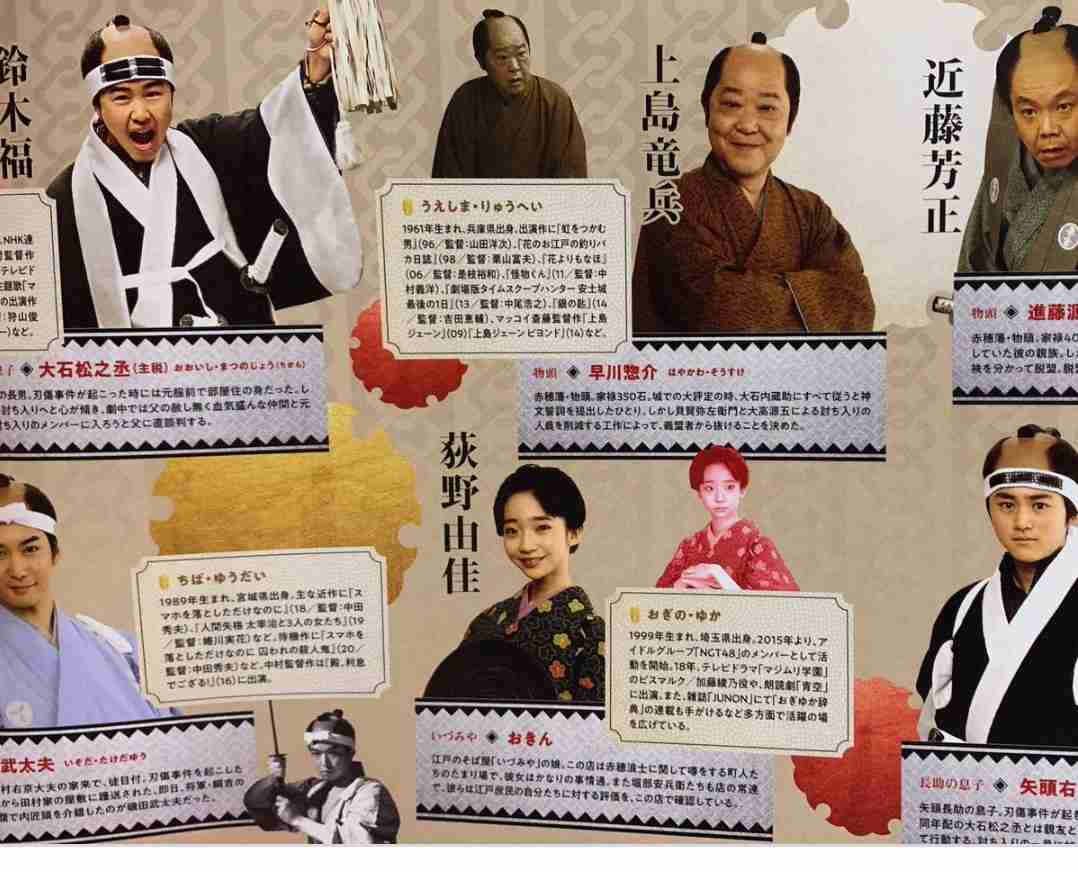 鈴木福
、NHK連
督監督作
テレビド
主題歌「マ
の出演作
:狩山俊
ー)など。
息子 ◈ 大石松之丞(主税) おおいし・まつのじょう(ちから)
の長男。刃傷事件が起こった時には元服前で部屋住の身だった。し
討ち入りへと心が傾き、劇中では父の赦し無く血気盛んな仲間と元
討ち入りのメンバーに入ろうと父に直談判する。
上島竜兵
うえしま・りゅうへい
1961年生まれ、兵庫県出身。出演作に『虹をつかむ
男』(96/監督:山田洋次)、『花のお江戸の釣りバ
カ日誌』(98/監督:栗山富夫)、『花よりもなほ』
(06/監督:是枝裕和)、『怪物くん』(11/監督:中
村義洋)、『劇場版タイムスクープハンター 安土城
最後の1日』(13/監督:中尾浩之)、『銀の匙』(14
/監督:吉田恵輔)、マッコイ斎藤監督作『上島
ジェーン』(09)『上島ジェーン ビヨンド』(14)など。
物頭 ◈ 早川惣介 はやかわ・そうすけ
赤穂藩・物頭。家禄350石。城での大評定の時、大石内蔵助にすべて従うと神
文誓詞を提出したひとり。しかし貝賀弥左衛門と大高源五による討ち入りの
人員を削減する工作によって、義盟者から抜けることを決めた。
近藤芳正
物頭 ◈ 進藤源
赤穂藩・物頭。家禄40
していた彼の親族。した
検を分かって脱盟。脱盟
ちば・ゆうだい
1989年生まれ、宮城県出身。主な近作に『ス
マホを落としただけなのに』(18/監督:中田
秀夫)、『人間失格 太宰治と3人の女たち』(19
/監督:蜷川実花)など。待機作に『スマホを
落としただけなのに 囚われの殺人鬼』(20/
監督:中田秀夫)など。中村監督作は『殿、利息
でござる!』(16)に出演。
武太夫 いそだ・たけだゆう
村右京大夫の家来で、徒目付。刃傷事件を起こした
から田村家の屋敷に護送された、即日、将軍・綱吉の
で内匠頭を介錯したのが磯田武太夫だった。
荻野由佳
おぎの・ゆか
1999年生まれ、埼玉県出身。2015年より、ア
イドルグループ「NGT48」のメンバーとして活
動を開始。18年、テレビドラマ「マジムリ学園」
のビスマルク/加藤綾乃役や、朗読劇「青空」
に出演。また、雑誌「JUNON」にて「おぎゆか辞
典」の連載も手がけるなど多方面で活躍の場
を広げている。
いづみや ◈ おきん
江戸のそば屋「いづみや」の娘。この店は赤穂浪士に関して噂をする町人た
ちのたまり場で、彼女はかなりの事情通。また堀部安兵衛たちも店の常連
で、彼らは江戸庶民の自分たちに対する評価を、この店で確認している。
長助の息子 ◈ 矢頭右
矢頭長助の息子。刃傷事件が起き
同年配の大石松之丞とは親友と
て行動する。討ち入りの一員に加